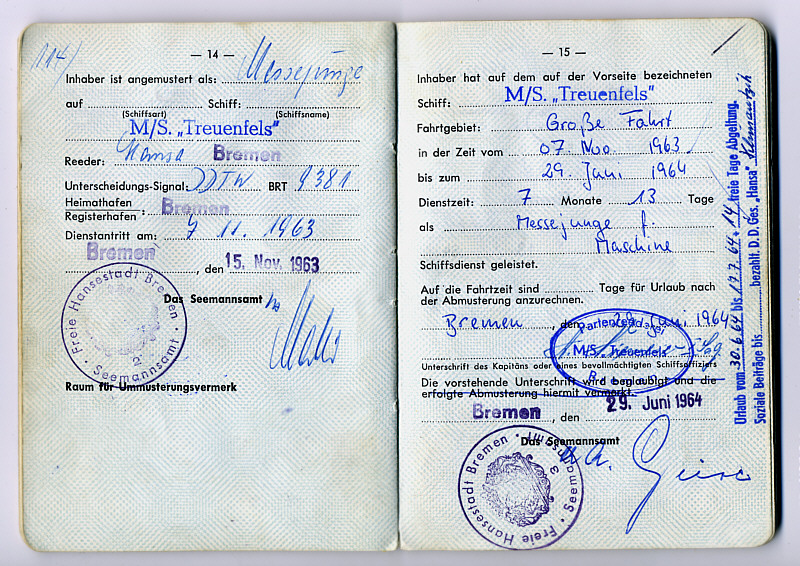 114)
— 14 —
Inhaber ist angemustert als: Messejunge
auf Schiff:
(Schiffsart) (Schiffsname)
M/S. „Treuenfels"
Reeder: Hansa Bremen
Unterscheidungs-Signal: DDTW BRT 9381
Heimathafen
Registerhafen : Bremen
Dienstantritt am: 7 11. 1963
Bremen, den 15. Nov. 1963
Das Seemannsamt
Freie Hansestadt Bremen · Seemannsamt ·
2
Raum für Ummusterungsvermerk
— 15 —
Inhaber hat auf dem auf der Vorseite bezeichneten
Schiff: M/S. „Treuenfels"
Fahrtgebiet: Große Fahrt
in der Zeit vom 07 Nov. 1963
bis zum 29. Juni 1964
Dienstzeit: 7 Monate 13 Tage
als Messejunge f.
Maschine
Schiffsdienst geleistet.
Auf die Fahrtzeit sind Tage für Urlaub nach
der Abmusterung anzurechnen.
Bremen, den 29. Juni 1964
M/S. „Treuenfels"
Bremen
Unterschrift des Kapitäns oder eines bevollmächtigten Schiffsoffiziers
Die vorstehende Unterschrift wird beglaubigt und die
erfolgte Abmusterung hiermit vermerkt.
Bremen, den 29. Juni 1964
Das Seemannsamt
Freie Hansestadt Bremen · Seemannsamt ·
3
Urlaub vom 30.6.64 bis 17.7.64 + 14 freie Tage Abgeltung.
Soziale Beiträge bis bezahlt. D. D. Ges. „Hansa"